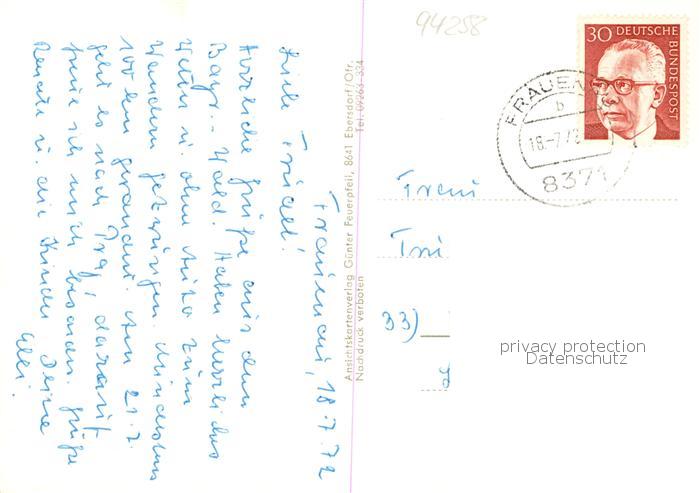 Frauenau, 18.7.72
Liebe Friedl!
Herzliche Grüße aus dem
Bayr. Wald. Haben herrliches
Wetter u. ohne Auto zum
Wandern gezwungen. Mindestens
100 km gewandert. Am 21.7.
geht es nach Prag, darauf
freue ich mich besonders. Grüße
Renate u. die Kinder Deine
Elli.
Ansichtskartenverlag Günter Feuerpfeil, 8641 Ebersdorf/Ofr.
Tel. 09263 334
Nachdruck verboten
94258
30 DEUTSCHE
BUNDESPOST
FRAUEN
b
18.-7.72
8371
33)
privacy protection
Datenschutz